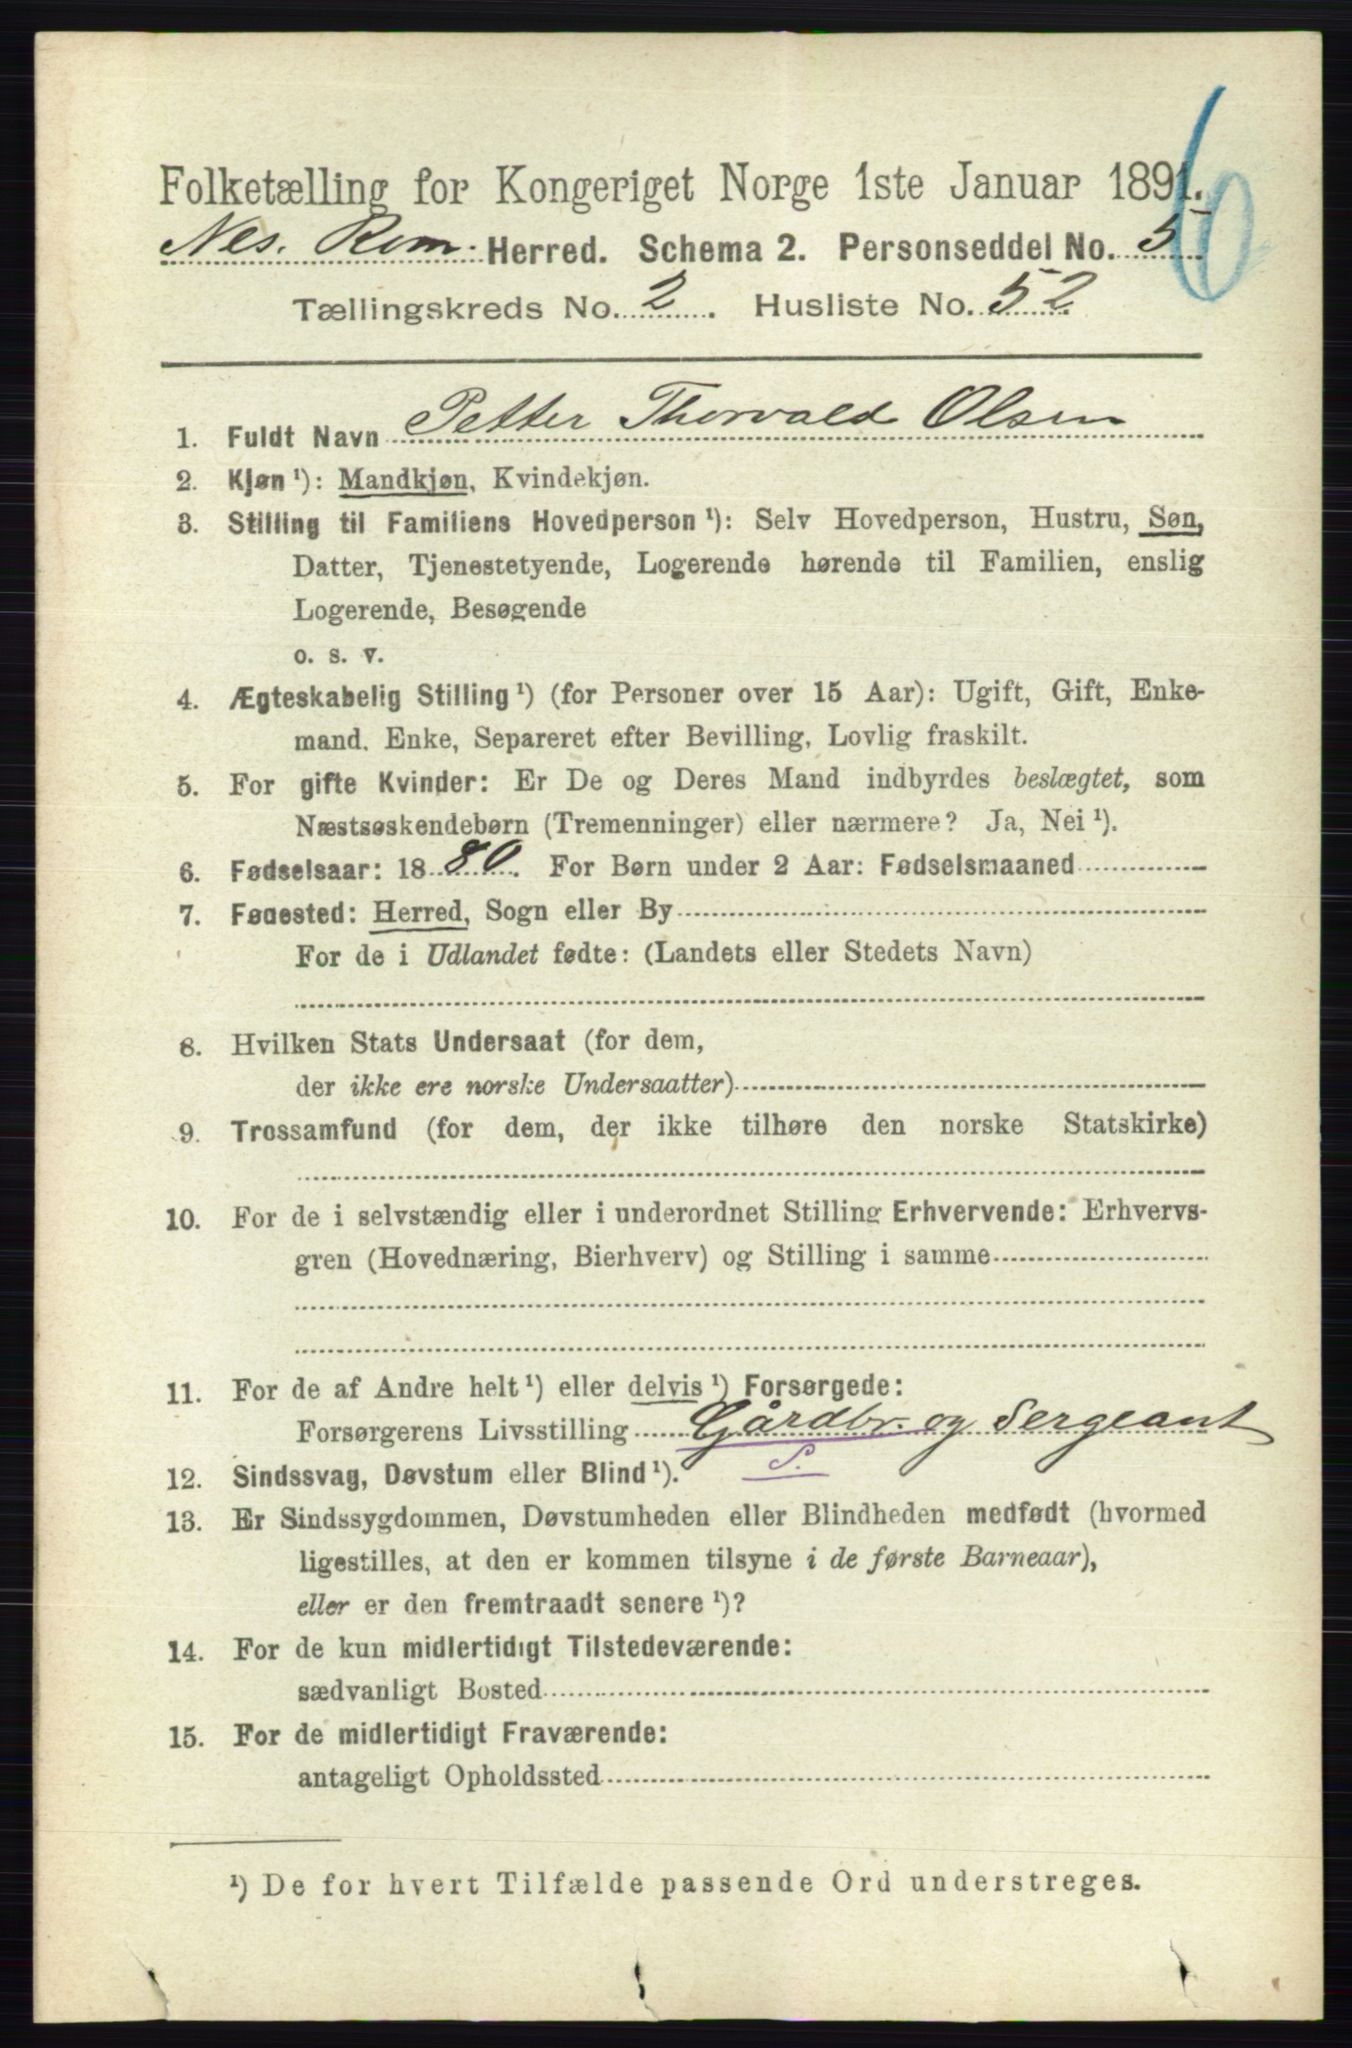 Folketælling for Kongeriget Norge 1ste Januar 1891.
Nes. Rom. Herred. Schema 2. Personseddel No. 5
6
Tællingskreds No. 2. Husliste No. 52
1. Fuldt Navn Petter Thorvald Olsen
2. Kjøn ¹): Mandkjøn, Kvindekjøn.
3. Stilling til Familiens Hovedperson ¹): Selv Hovedperson, Hustru, Søn,
Datter, Tjenestetyende, Logerende hørende til Familien, enslig
Logerende, Besøgende
o. s. v.
4. Ægteskabelig Stilling ¹) (for Personer over 15 Aar): Ugift, Gift, Enke-
mand, Enke, Separeret efter Bevilling, Lovlig fraskilt.
5. For gifte Kvinder: Er De og Deres Mand indbyrdes beslægtet, som
Næstsøskendebørn (Tremenninger) eller nærmere? Ja, Nei ¹).
6. Fødselsaar: 1880. For Børn under 2 Aar: Fødselsmaaned
7. Fødested: Herred, Sogn eller By
For de i Udlandet fødte: (Landets eller Stedets Navn)
8. Hvilken Stats Undersaat (for dem,
der ikke ere norske Undersaatter)
9. Trossamfund (for dem, der ikke tilhøre den norske Statskirke)
10. For de i selvstændig eller i underordnet Stilling Erhvervende: Erhvervs-
gren (Hovednæring, Bierhverv) og Stilling i samme
11. For de af Andre helt ¹) eller delvis ¹) Forsørgede:
Forsørgerens Livsstilling Gårdbr. og Sergeant
S.
12. Sindssvag, Døvstum eller Blind ¹).
13. Er Sindssygdommen, Døvstumheden eller Blindheden medfødt (hvormed
ligestilles, at den er kommen tilsyne i de første Barneaar),
eller er den fremtraadt senere ¹)?
14. For de kun midlertidigt Tilstedeværende:
sædvanligt Bosted
15. For de midlertidigt Fraværende:
antageligt Opholdssted
¹) De for hvert Tilfælde passende Ord understreges.